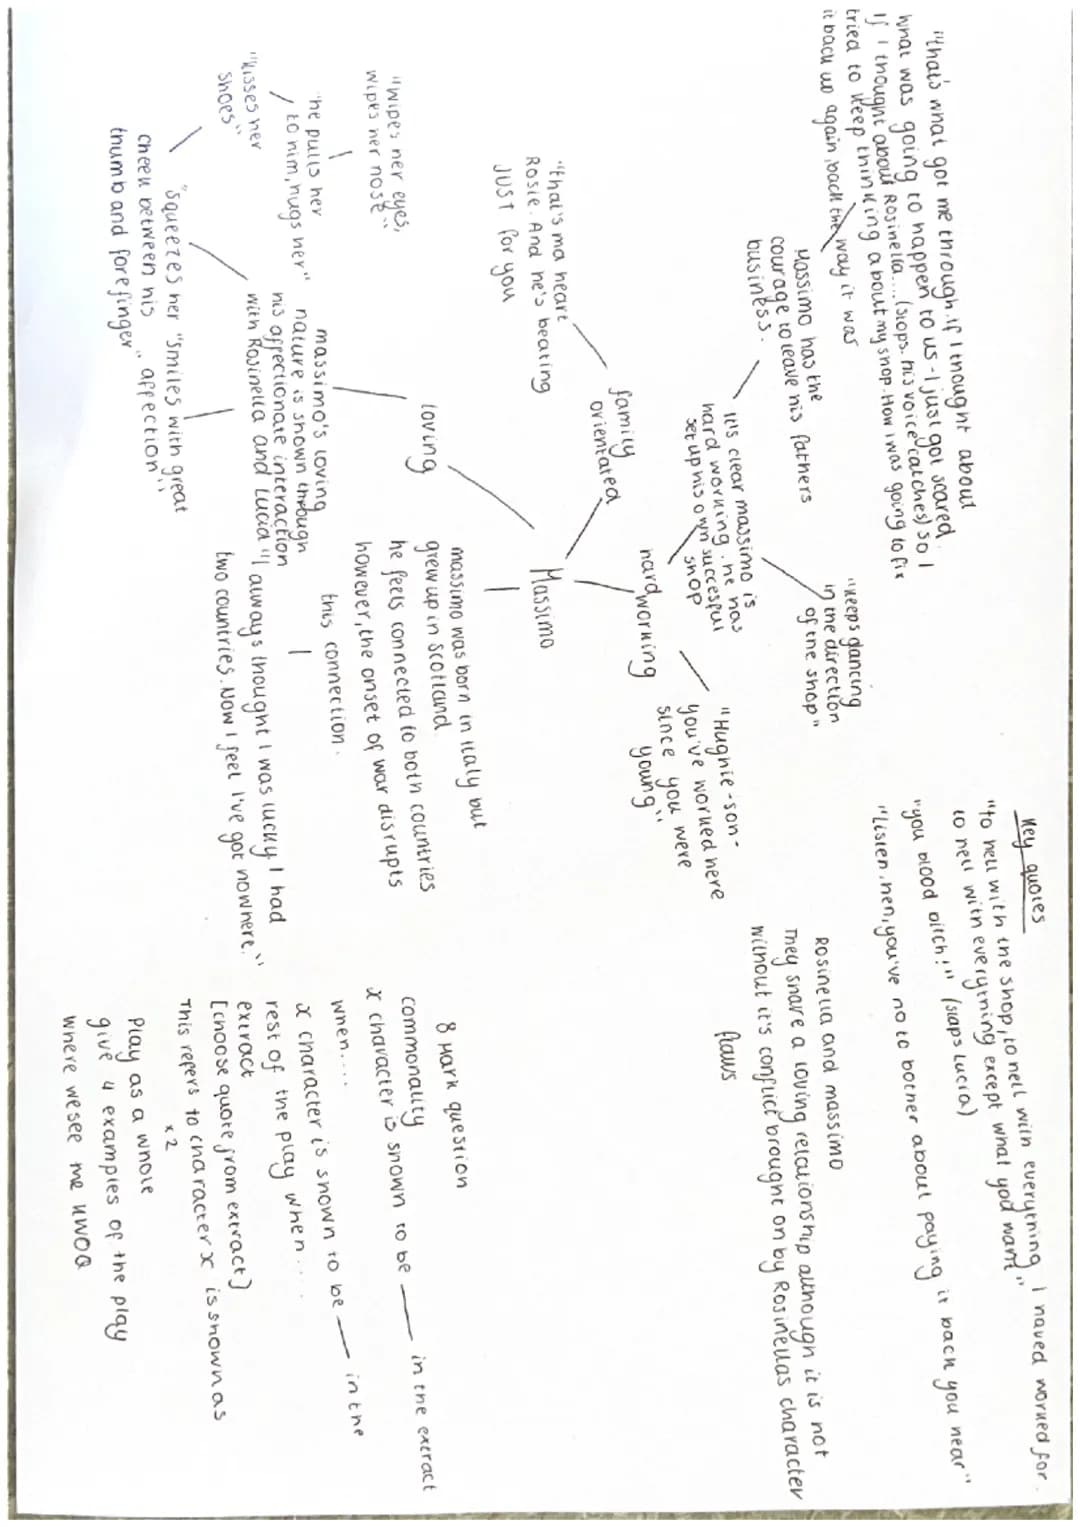 "that's what got me through. if I thought about
what was going to happen to us - I just got scared.
If I thought about Rosinella.... (stops. his voice catches) so I
tried to keep thinking about my shop. How I was going to fix
it back up again, back the way it was
Massimo has the
courage to leave his fathers
business.
"keeps glancing
in the direction
of the shop"
It's clear massimo is
hard working. he has
set up his own succesful
shop
"Hughie - son -
you've worked here
since you were
young"
hard working
family
orientated
"that's ma heart
Rosie. And he's beating
just for you
Massimo
loving
"wipes her eyes,
wipes her nose"
"he pulls her
to him, hugs her"
"kisses her
shoes"
massimo's loving
nature is shown through
his affectionate interaction
with Rosinella and Lucia
"squeezes her
cheek between his
thumb and forefinger"
"smiles with great
affection"
massimo was born in italy but
grew up in Scotland.
he feels connected to both countries
however, the onset of war disrupts
this connection.
"I always thought I was lucky I had
two countries. Now I feel I've got nowhere."
Key quotes
"to hell with the shop, to hell with everything I haved worked for.
to hell with everything except what you want"
"you blood bitch!" (slaps Lucia)
"Listen, hen, you've no to bother about paying it back you hear"
Rosinella and massimo
They share a loving relationship although it is not
without it's conflict brought on by Rosinellas character
flaws
8 Mark question
commonality
x character is shown to be — in the extract
when....
x character is shown to be — in the
rest of the play when....
extract
[choose quote from extract]
This refers to character x is shown as
x2
Play as a whole
give 4 examples of the play
where we see me KWOQ